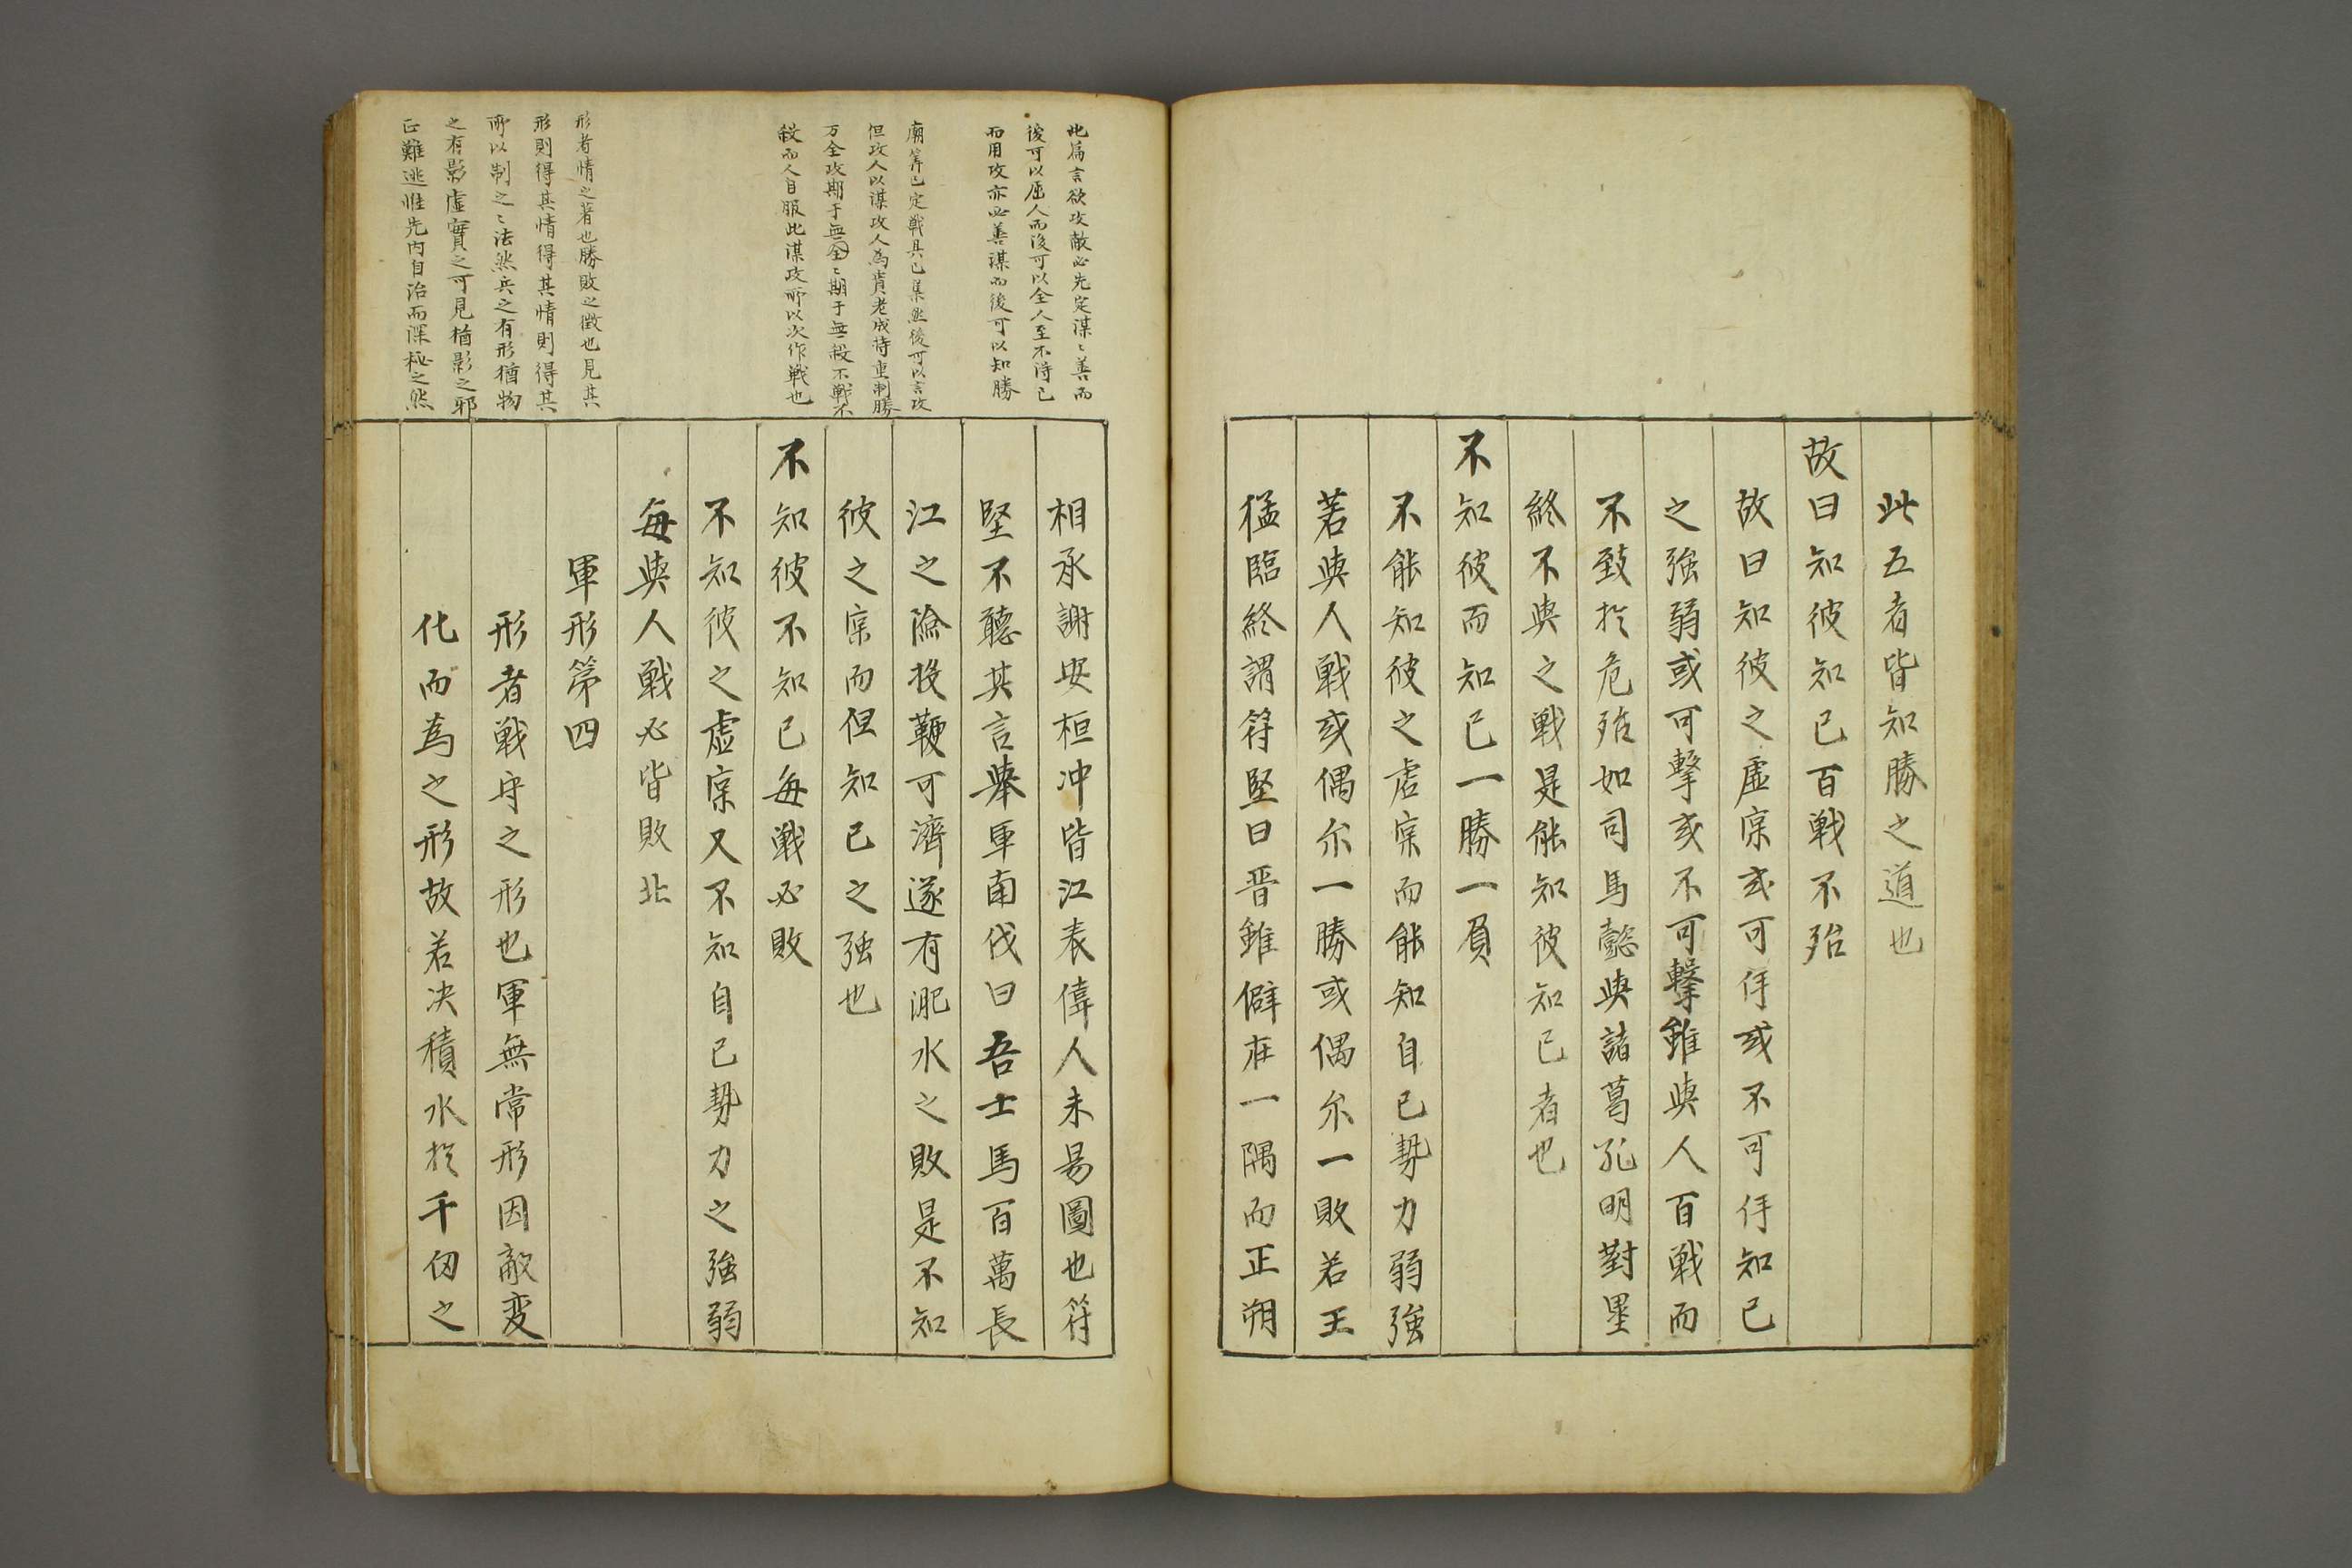 此五者皆知勝之道也
故曰知彼知己百戦不殆
故曰知彼之虚寔或可伐或不可伐知己
之強弱或可擊或不可擊雖與人百戦而
不致於危殆如司馬懿與諸葛孔明對壘
終不與之戦是能知彼知己者也
不知彼而知己一勝一負
不能知彼之虚寔而能知自己勢力弱強
若與人戦或偶尓一勝或偶尓一敗若王
猛臨終謂符堅曰晋雖僻在一隅而正朔
此篇言欲攻敵必先定謀〻善而
後可以屈人而後可以全人至不得已
而用攻亦必善謀而後可以知勝
廟筭已定戦具已集然後可以言攻
但攻人以謀攻人為貴老成持重制勝
万全攻期于無全〻期于無殺不戦不
殺而人自服此謀攻所以次作戦也
形者情之著也勝敗之徴也見其
形則得其情得其情則得其
所以制之〻法然兵之有形猶物
之有影虚實之可見猶影之邪
正難逃惟先内自治而深秘之然
相承謝安桓冲皆江表偉人未易圖也符
堅不聽其言舉軍南伐曰吾士馬百萬長
江之險投鞭可濟遂有淝水之敗是不知
彼之寔而但知己之強也
不知彼不知己每戦必敗
不知彼之虚寔又不知自己勢力之強弱
每與人戦必皆敗北
軍形第四
形者戦守之形也軍無常形因敵変
化而為之形故若决積水於千仭之